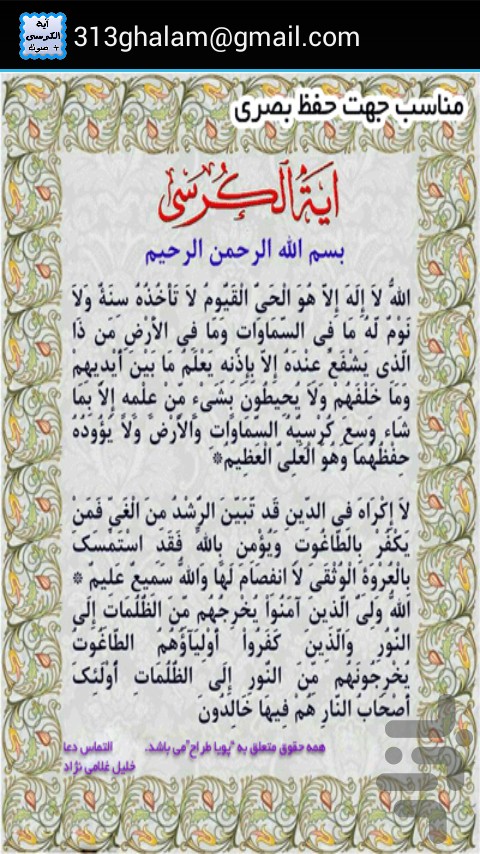 313ghalam@gmail.com
آیة الکرسی
+ صوت
مناسب جهت حفظ بصری
آیَةُ الکُرسی
بسم الله الرحمن الرحیم
اللهُ لاَ إِلَهَ إِلاَّ هُوَ الْحَيُّ الْقَيُّومُ لاَ تَأْخُذُهُ سِنَةٌ وَلاَ
نَوْمٌ لَّهُ مَا فِي السَّمَاوَاتِ وَمَا فِي الأَرْضِ مَن ذَا
الَّذِي يَشْفَعُ عِنْدَهُ إِلاَّ بِإِذْنِهِ يَعْلَمُ مَا بَيْنَ أَيْدِيهِمْ
وَمَا خَلْفَهُمْ وَلاَ يُحِيطُونَ بِشَيْءٍ مِّنْ عِلْمِهِ إِلاَّ بِمَا
شَاء وَسِعَ كُرْسِيُّهُ السَّمَاوَاتِ وَالأَرْضَ وَلاَ يَؤُودُهُ
حِفْظُهُمَا وَهُوَ الْعَلِيُّ الْعَظِيمُ*
لاَ إِكْرَاهَ فِي الدِّينِ قَد تَّبَيَّنَ الرُّشْدُ مِنَ الْغَيِّ فَمَنْ
يَكْفُرْ بِالطَّاغُوتِ وَيُؤْمِن بِاللهِ فَقَدِ اسْتَمْسَكَ
بِالْعُرْوَةِ الْوُثْقَىَ لاَ انفِصَامَ لَهَا وَاللهُ سَمِيعٌ عَلِيمٌ *
اللهُ وَلِيُّ الَّذِينَ آمَنُواْ يُخْرِجُهُم مِّنَ الظُّلُمَاتِ إِلَى
النُّوُرِ وَالَّذِينَ كَفَرُواْ أَوْلِيَآؤُهُمُ الطَّاغُوتُ
يُخْرِجُونَهُم مِّنَ النُّورِ إِلَى الظُّلُمَاتِ أُوْلَئِكَ
أَصْحَابُ النَّارِ هُمْ فِيهَا خَالِدُونَ
همه حقوق متعلق به "پویا طراح" می باشد. التماس دعا
خلیل غلامی نژاد
بازار